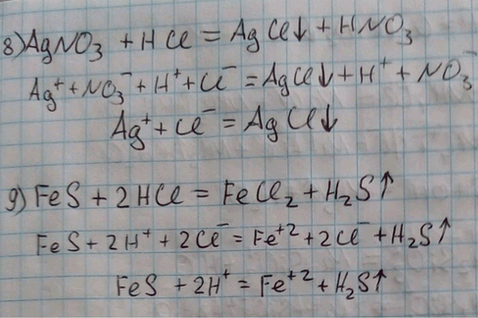 8) AgNO₃ + HCl = AgCl↓ + HNO₃
Ag⁺ + NO₃⁻ + H⁺ + Cl⁻ = AgCl↓ + H⁺ + NO₃⁻
Ag⁺ + Cl⁻ = AgCl↓
9) FeS + 2HCl = FeCl₂ + H₂S↑
FeS + 2H⁺ + 2Cl⁻ = Fe⁺² + 2Cl⁻ + H₂S↑
FeS + 2H⁺ = Fe⁺² + H₂S↑